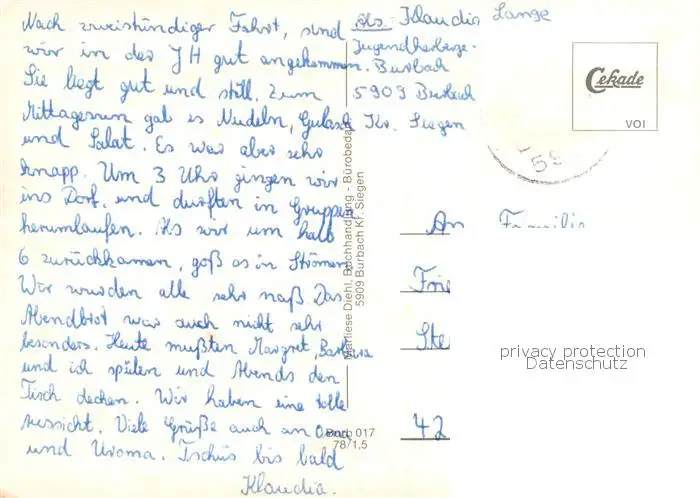 Nach zweistündiger Fahrt, sind
wir in der JH gut angekommen.
Sie liegt gut und still. Zum
Mittagessen gab es Nudeln, Gulasch
und Salat. Es war aber sehr
knapp. Um 3 Uhr gingen wir
ins Dorf, und durften in Gruppen
herumlaufen. Als wir um halb
6 zurückkamen, goß es in Strömen
Wir wurden alle sehr naß Das
Abendbrot war auch nicht sehr
besonders. Heute mußten Margret, Barbara
und ich spülen und Abends den
Tisch decken. Wir haben eine tolle
Aussicht. Viele Grüße auch an Oma
und Uroma. Tschüs bis bald
Klaudia.
Abs: Klaudia Lange
Jugendherberge-
Burbach
5909 Burbach
Kr. Siegen
Marliese Diehl, Buchhandlung - Bürobedarf
5909 Burbach Kr. Siegen
Cekade
VOI
59
An Familie
Frie
Ste
42
privacy protection
Datenschutz
Burb 017
78/1,5